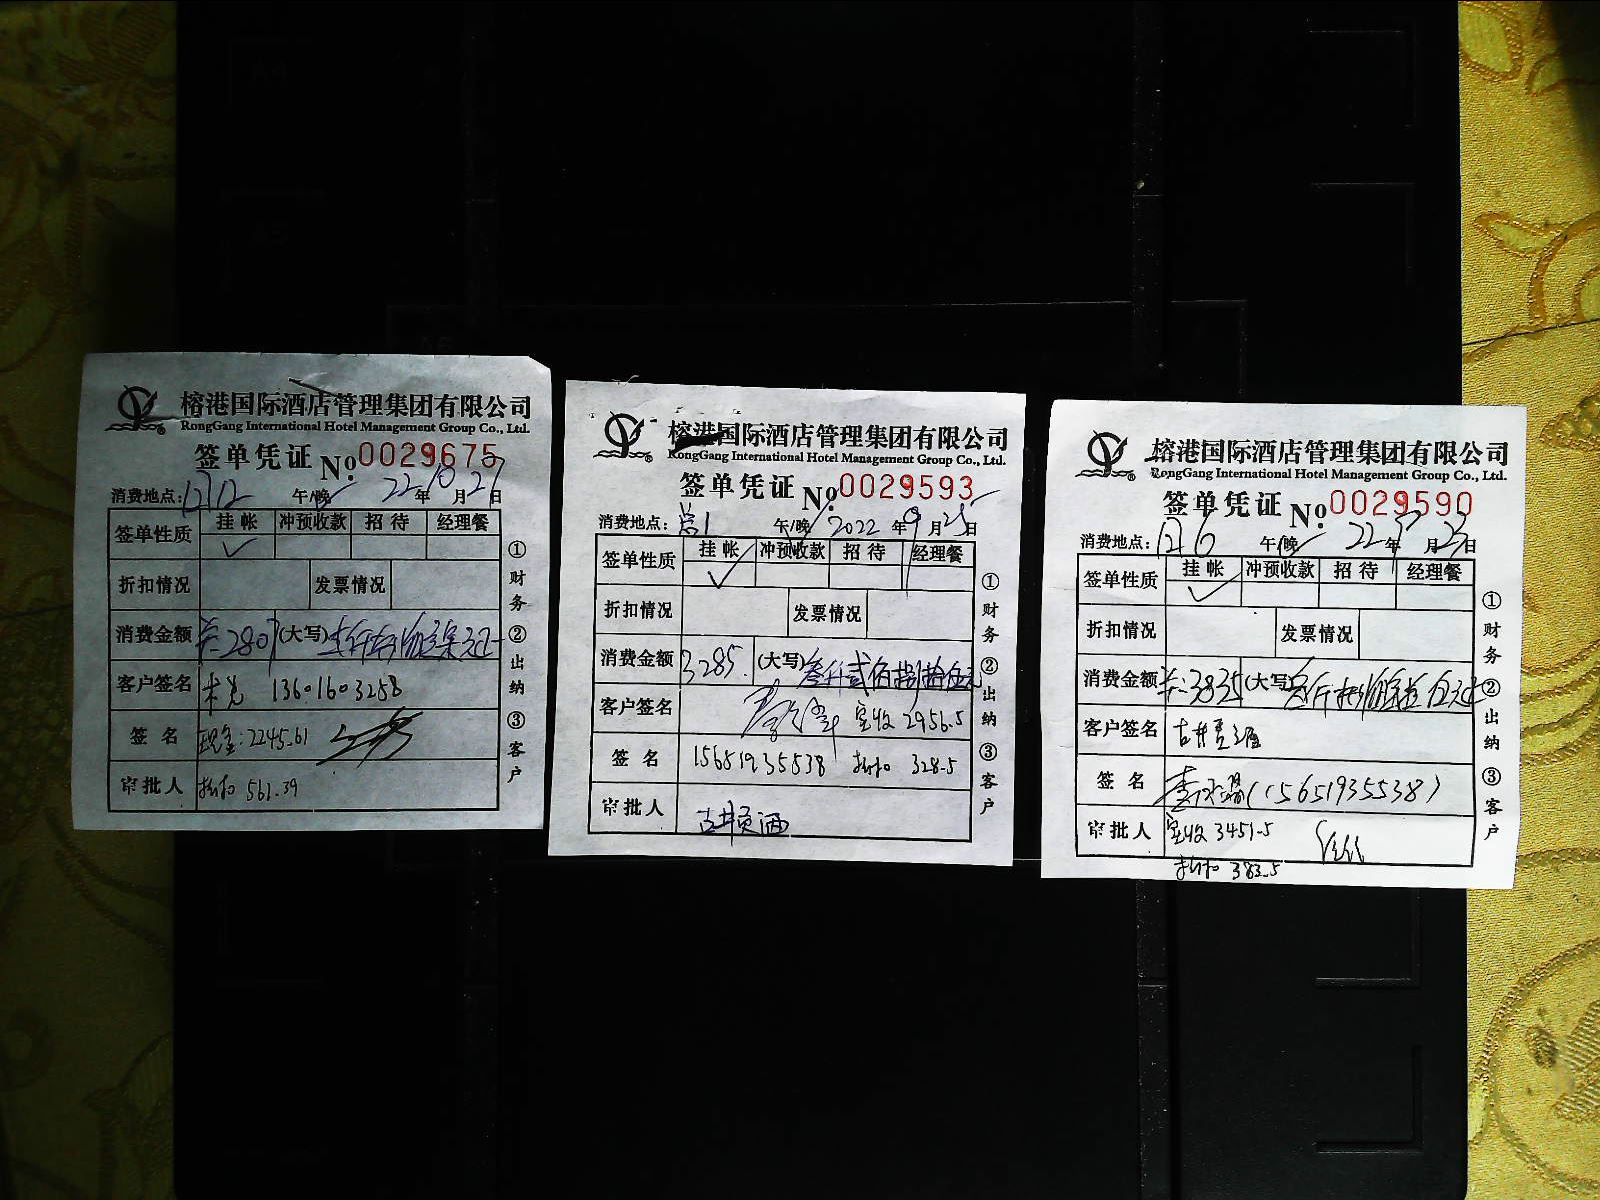 榕港国际酒店管理集团有限公司
RongGang International Hotel Management Group Co., Ltd.
签单凭证 No. 0029675
消费地点: 午/晚 22年10月27日
签单性质 挂帐 冲预收款 招待 经理餐
折扣情况 发票情况
消费金额 2807 (大写)
客户签名 13601603258
签名 现金:2245.61
审批人 折扣 561.39
①财务 ②出纳 ③客户
榕港国际酒店管理集团有限公司
RongGang International Hotel Management Group Co., Ltd.
签单凭证 No. 0029593
消费地点: 午/晚 2022年9月25日
签单性质 挂帐 冲预收款 招待 经理餐
折扣情况 发票情况
消费金额 3285. (大写) 叁仟贰佰捌拾伍元
客户签名 实收 2956.5
签名 15651935538 折扣 328.5
审批人 古井贡酒
①财务 ②出纳 ③客户
榕港国际酒店管理集团有限公司
RongGang International Hotel Management Group Co., Ltd.
签单凭证 No. 0029590
消费地点: 午/晚 22年 月23日
签单性质 挂帐 冲预收款 招待 经理餐
折扣情况 发票情况
消费金额 3835 (大写)
客户签名 古井贡酒
签名 (15651935538)
审批人 实收 3451.5
折扣 383.5
①财务 ②出纳 ③客户